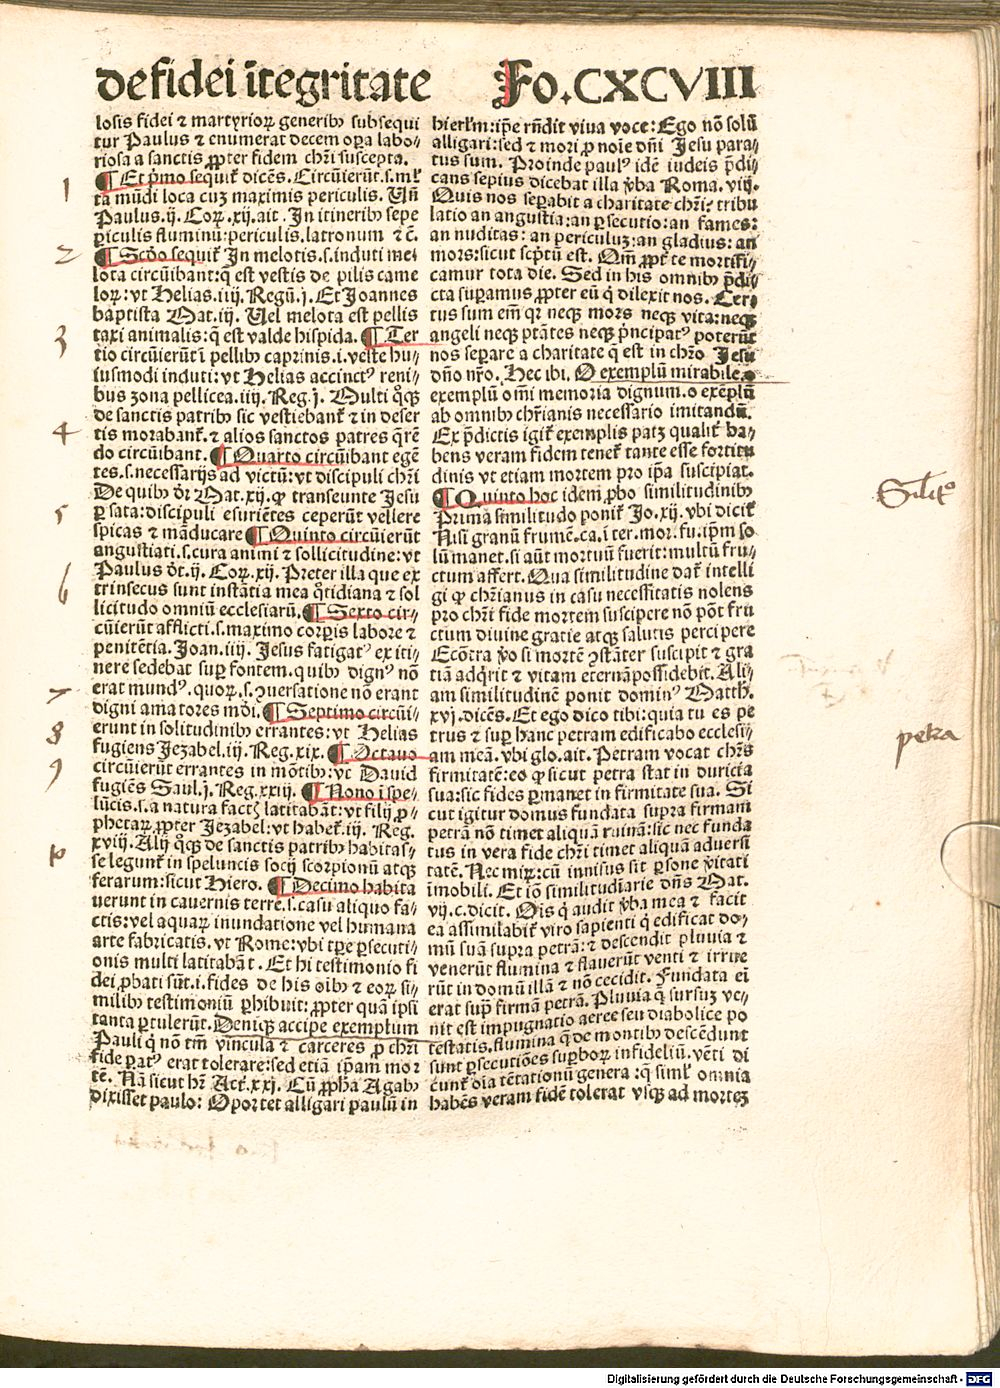 de fidei ītegritate Fo. CXCVIII
losis fidei ⁊ martyrioꝝ generibꝰ subsequi
tur Paulus ⁊ enumerat decem oꝑa labo-
riosa a sanctis ꝓpter fidem chr̄i suscepta.
¶ Et pͥmo sequit̄ dicēs. Circūierūt .s. ml̄
ta mūdi loca cuꝫ maximis periculis. Vn̄
Paulus .ij. Coꝝ .xij. ait. In itineribꝰ sepe
ꝑiculis fluminū: periculis .latronum ⁊ c̄.
¶ Scd̄o sequit̄ In melotis .s. induti me-
lota circūibant: q̄ est vestis de pilis came
loꝝ: vt Helias .iiij. Regū .j. Et Joannes
baptista Mat. iij. Vel melota est pellis
taxi animalis: q̄ est valde hispida. ¶ Ter
tio circūierūt ī pellibꝰ caprinis .i. veste hu-
iusmodi induti: vt Helias accinctꝰ reni-
bus zona pellicea .iiij. Reg. j. Multi qͦꝫ
de sanctis patribꝰ sic vestiebant̄ ⁊ in deser
tis morabant̄. ⁊ alios sanctos patres q̄rē
do circūibant. ¶ Quarto circūibant egē
tes .s. necessarijs ad victū: vt discipuli chr̄i
De quibꝰ dr̄ Mat. xij. ꝙ transeunte Jesu
ꝑ sata: discipuli esuriētes ceperūt vellere
spicas ⁊ māducare ¶ Quinto circūierūt
angustiati .s. cura animi ⁊ sollicitudine: vt
Paulus dt̄ .ij. Coꝝ .xij. Preter illa que ex
trinsecus sunt instātia mea qͦtidiana ⁊ sol
licitudo omniū ecclesiarū. ¶ Sexto cir-
cūierūt afflicti .s. maximo corꝑis labore ⁊
penitētia. Joan. iiij. Jesus fatigatꝰ ex iti-
nere sedebat suꝑ fontem. quibꝰ dignꝰ nō
erat mundꝰ. quoꝝ .s. ꝯuersatione nō erant
digni amatores mūdi. ¶ Septimo circūi-
erunt in solitudinibꝰ errantes: vt Helias
fugiens Jezabel .iij. Reg. xix. ¶ Octauo
circūierūt errantes in mōtibꝰ: vt Dauid
fugiēs Saul .j. Reg. xxiij. ¶ Nono ī spe-
lūcis .s. a natura factꝭ latitabāt: vt filij ꝓ-
phetaꝝ ꝓpter Jezabel: vt habet̄ .iij. Reg.
xviij. Alij qͦꝫ de sanctis patribꝰ habitas-
se legunt̄ in speluncis socij scorpionū atqꝫ
ferarum: sicut Hiero. ¶ Decimo habita
uerunt in cauernis terre .s. casu aliquo fa-
ctis: vel aquaꝝ inundatione vel humana
arte fabricatis. vt Rome: vbi tꝑe ꝑsecuti-
onis multi latitabāt. Et hi testimonio fi
dei ꝓbati sūt .i. fides de his oībꝰ ⁊ eoꝝ si-
milibꝰ testimoniū ꝑhibuit: ꝓpter quā ipsi
tanta ꝑtulerūt. Deniqꝫ accipe exemplum
Pauli qͥ nō tm̄ vincula ⁊ carceres ꝓ chr̄i
fide ꝑatꝰ erat tolerare: sed etiā ip̄am mor
tē. Nā sicut hr̄ Act. xxj. Cū ꝓpha Agabꝰ
dixisset paulo: Oportet alligari paulū in
hierl̄m: ip̄e rn̄dit viua voce: Ego nō solū
alligari: sed ⁊ mori ꝓ noīe dn̄i Jesu para-
tus sum. Proinde paulꝰ idē iudeis p̄di-
cans sepius dicebat illa v̄ba Roma. viij.
Quis nos seꝑabit a charitate chr̄i: tribu
latio an angustia: an ꝑsecutio: an fames:
an nuditas: an periculuꝫ: an gladius: an
mors: sicut scptū est. Qm̄ ꝓpt̄ te mortifi-
camur tota die. Sed in his omnibꝰ p̄di-
cta suꝑamus ꝓpter eū qͥ dilexit nos. Cer-
tus sum em̄ qꝛ neqꝫ mors neqꝫ vita: neqꝫ
angeli neqꝫ ptātes neqꝫ pͥncipatꝰ poterūt
nos seꝑare a charitate q̄ est in chr̄o Jesu
dn̄o nr̄o. Hec ibi. O exemplū mirabile.
exemplū omī memoria dignum. o exēplū
ab omnibꝰ chr̄ianis necessario imitandū.
Ex p̄dictis igit̄ exemplis patꝫ qualit̄ ha-
bens veram fidem tenet̄ tante esse fortitu
dinis vt etiam mortem pro ip̄a suscipiat.
¶ Quinto hoc idem ꝓbo similitudinibꝰ
Prima similitudo ponit̄ Jo. xij. vbi dicit̄
Nisi granū frumē. ca. ī ter. mor. fu. ip̄m so
lū manet. si aūt mortuū fuerit: multū fru-
ctum affert. Qua similitudine dat̄ intelli
gi ꝙ chr̄ianus in casu necessitatis nolens
pro chr̄i fide mortem suscipere nō pōt fru
ctum diuine gratie atqꝫ salutis percipere
Ecōtra v̄o si mortē ꝯstāter suscipit ⁊ gra
tiā adqͥrit ⁊ vitam eternā possidebit. Ali-
am similitudinē ponit dominꝰ Matth.
xvj. dicēs. Et ego dico tibi: quia tu es pe
trus ⁊ suꝑ hanc petram edificabo ecclesi-
am meā. vbi glo. ait. Petram vocat chr̄s
firmitatē: eo ꝙ sicut petra stat in duricia
sua: sic fides ꝑmanet in firmitate sua. Si
cut igitur domus fundata supra firmam
petrā nō timet aliquā ruinā: sic nec funda
tus in vera fide chr̄i timet aliquā aduersi
tatē. Nec miꝝ: cū innisus sit ꝑsone v̄itati
īmobili. Et iō similitudīarie dn̄s Mat.
vij. c. dicit. Oīs qͥ audit v̄ba mea ⁊ facit
ea assimilabit̄ viro sapienti qͥ edificat do-
mū suā supra petrā: ⁊ descendit pluuia ⁊
venerūt flumina ⁊ flauerūt venti ⁊ irrue
rūt in domū illā ⁊ nō cecidit. Fundata eī
erat supͣ firmā petrā. Pluuia qͥ sursuꝫ ve-
nit est impugnatio aeree seu diabolice po
testatis. flumina q̄ de montibꝰ descēdunt
sunt ꝑsecutiões suꝑboꝝ infideliū. vēti di
cunt̄ oīa tētationū genera: qͥ siml̄ omnia
habēs veram fidē tolerat vsqꝫ ad morteꝫ
1
2
3
4
5
6
7
8
9
10
Sīlitͦ
petra
Digitalisierung gefördert durch die Deutsche Forschungsgemeinschaft - DFG